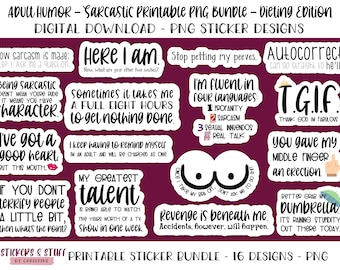 ADULT HUMOR - SARCASTIC PRINTABLE PNG BUNDLE - DIETING EDITION
DIGITAL DOWNLOAD - PNG STICKER DESIGNS
How sarcasm is made:
Step 1: Ask me a question.
Here I am.
Now, what are your other two wishes?
Stop petting my peeves.
AUTOCORRECT
can go straight to HE'LL.
Being sarcastic
DOESN'T MEAN YOU'RE RUDE
IT MEANS YOU HAVE
CHARACTER.
Sometimes it takes me
a full eight hours
to get nothing done.
I'm fluent in
four languages
1 PROFANITY
2 SARCASM
3 SEXUAL INNUENDOS
4 REAL TALK
T.G.I.F.
THANK GOD I'M FABULOUS
I'VE GOT A
GOOD HEART,
BUT THIS MOUTH
I keep having to remind myself
I'M AN ADULT AND WILL BE CHARGED AS ONE.
YOU GAVE MY
MIDDLE FINGER
AN ERECTION.
IF YOU DON'T
TERRIFY PEOPLE
A LITTLE BIT,
THEN WHAT'S THE POINT?
MY GREATEST
talent
IS BEING ABLE TO WATCH
FIVE YEARS WORTH OF A
TV SHOW IN ONE WEEK.
Revenge is beneath me.
Accidents, however, will happen.
BETTER GRAB A
DUMBRELLA
IT'S RAINING STUPIDITY
OUT THERE TODAY.
STICKERS & STUFF
BY CHRISTINE
PRINTABLE STICKER BUNDLE - 16 DESIGNS - PNG